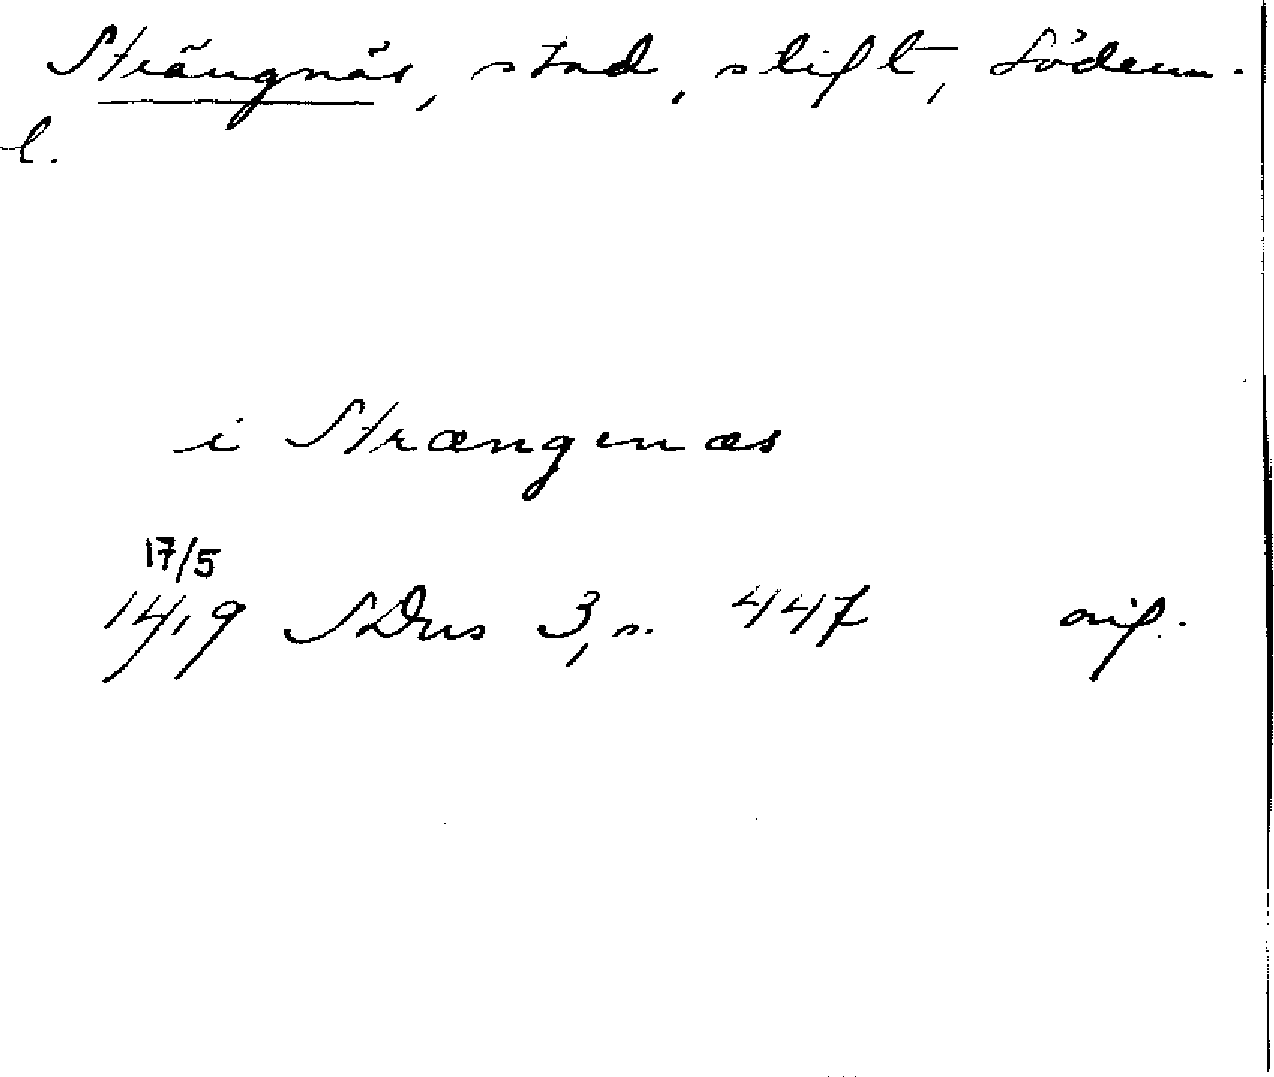 Strängnäs, stad, stift, Söderm.
l.
i Strængenæs
17/5
1419 SDns 3, s. 447 orig.